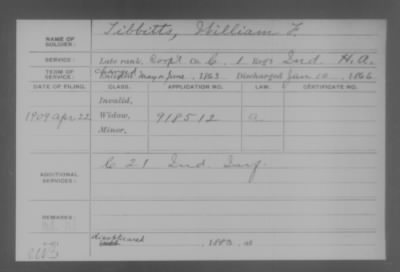 NAME OF SOLDIER: Tibbitts, William F.
SERVICE: Late rank, Corp'l Co. C, 1 Reg't Ind. H. A.
TERM OF SERVICE: Enlisted May or June, 1863 Discharged Jan 10, 1866
DATE OF FILING. CLASS. APPLICATION NO. LAW. CERTIFICATE NO.
Invalid,
1909 Apr 22 Widow, 918512 a
Minor,
ADDITIONAL SERVICES: C 21 Ind. Inf.
REMARKS:
disappeared, 1883, at